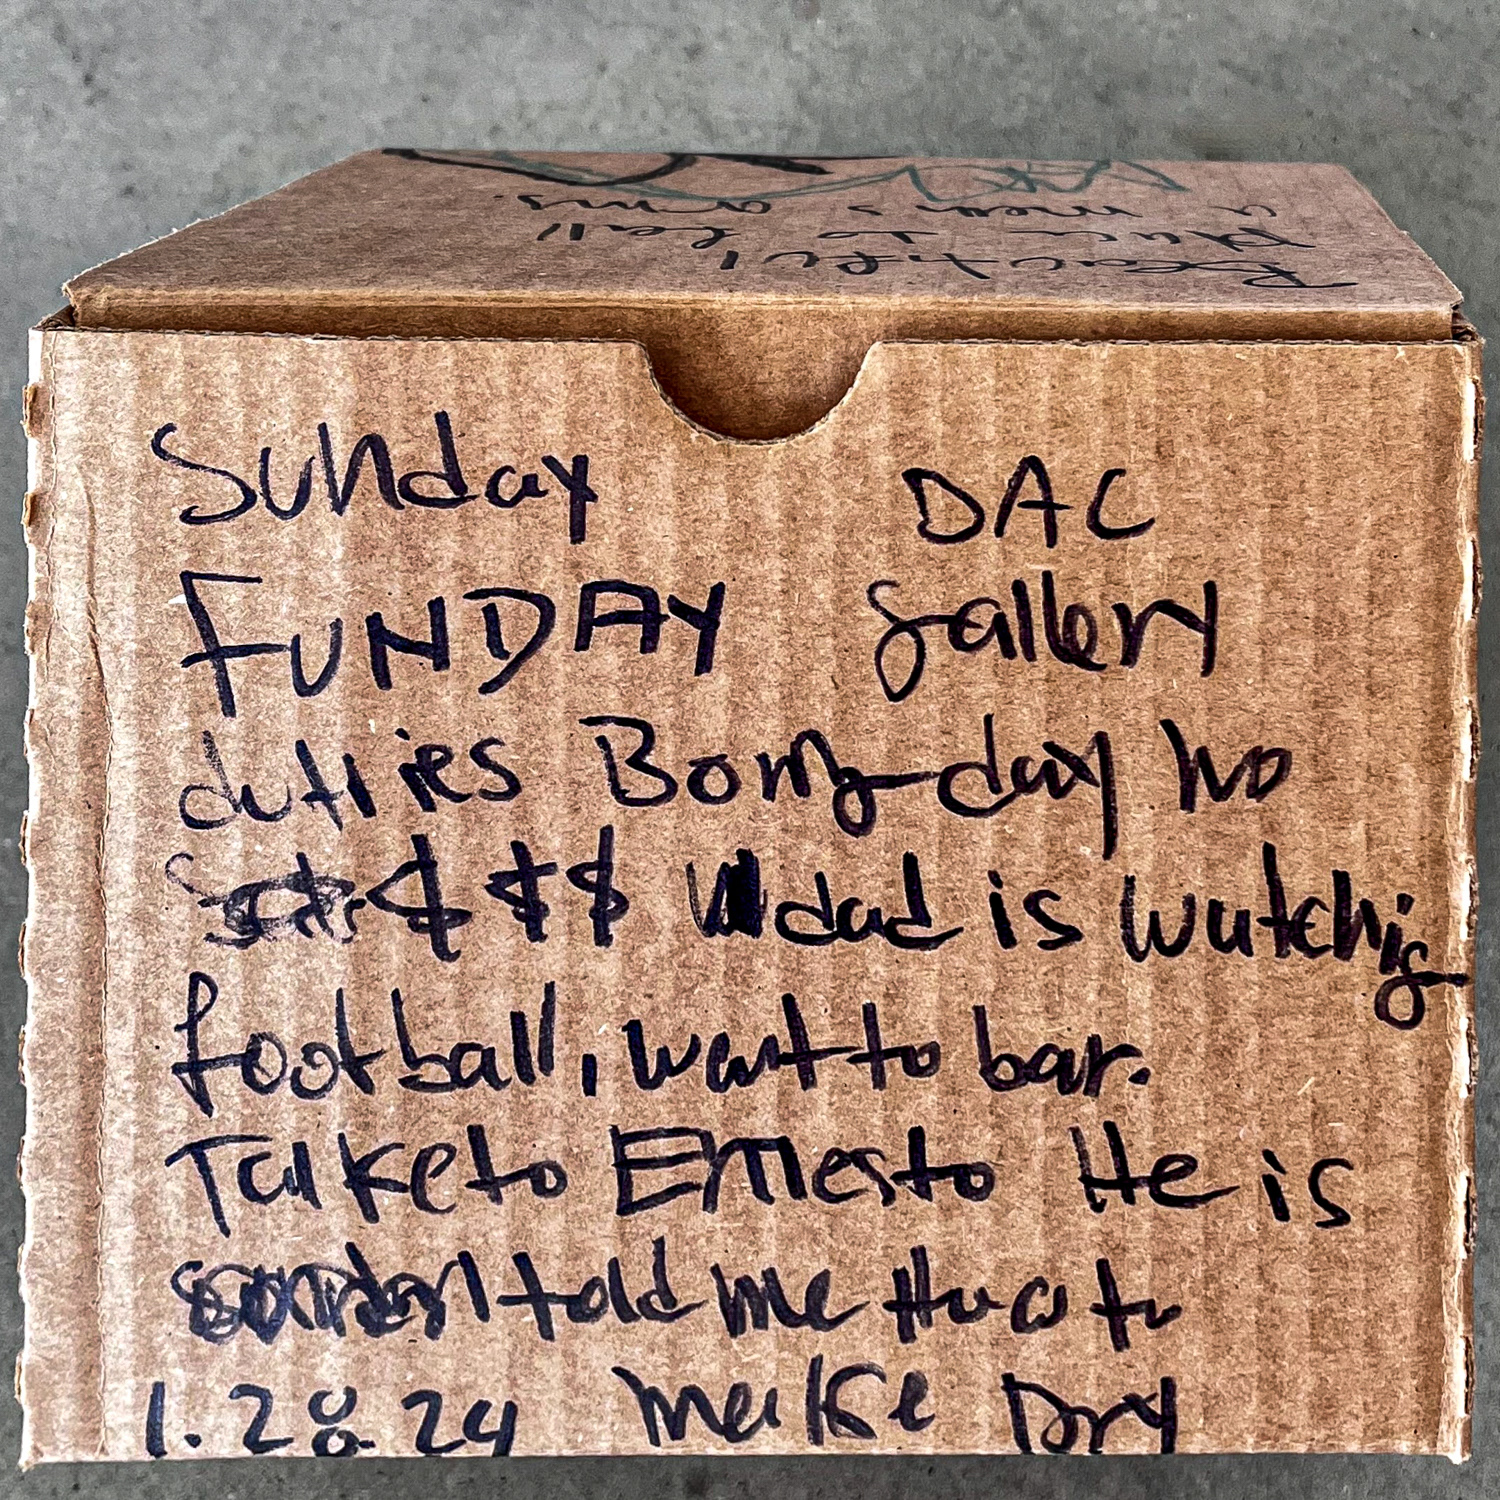 Beautiful
place to fall
a men's arms
Sunday DAC
FUNDAY gallery
duties Boring day no
$ $ $ dad is watching
football, went to bar.
Talke to Ernesto He is
told me
1.28.24 make Dry